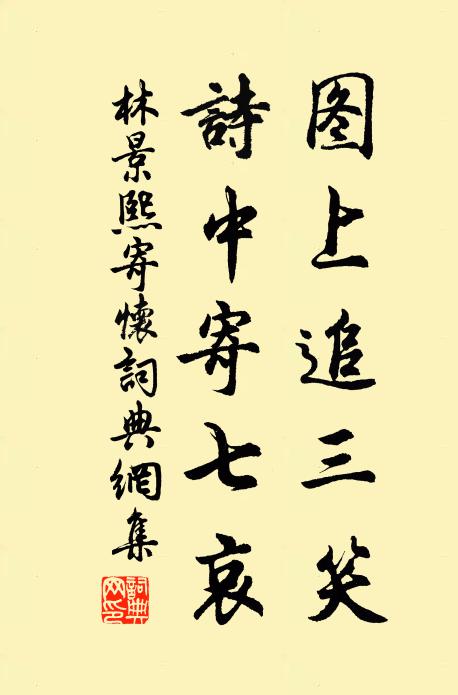 图上追三笑
詩中寄七哀
林景熙寄懷詞典網集
詞典网印